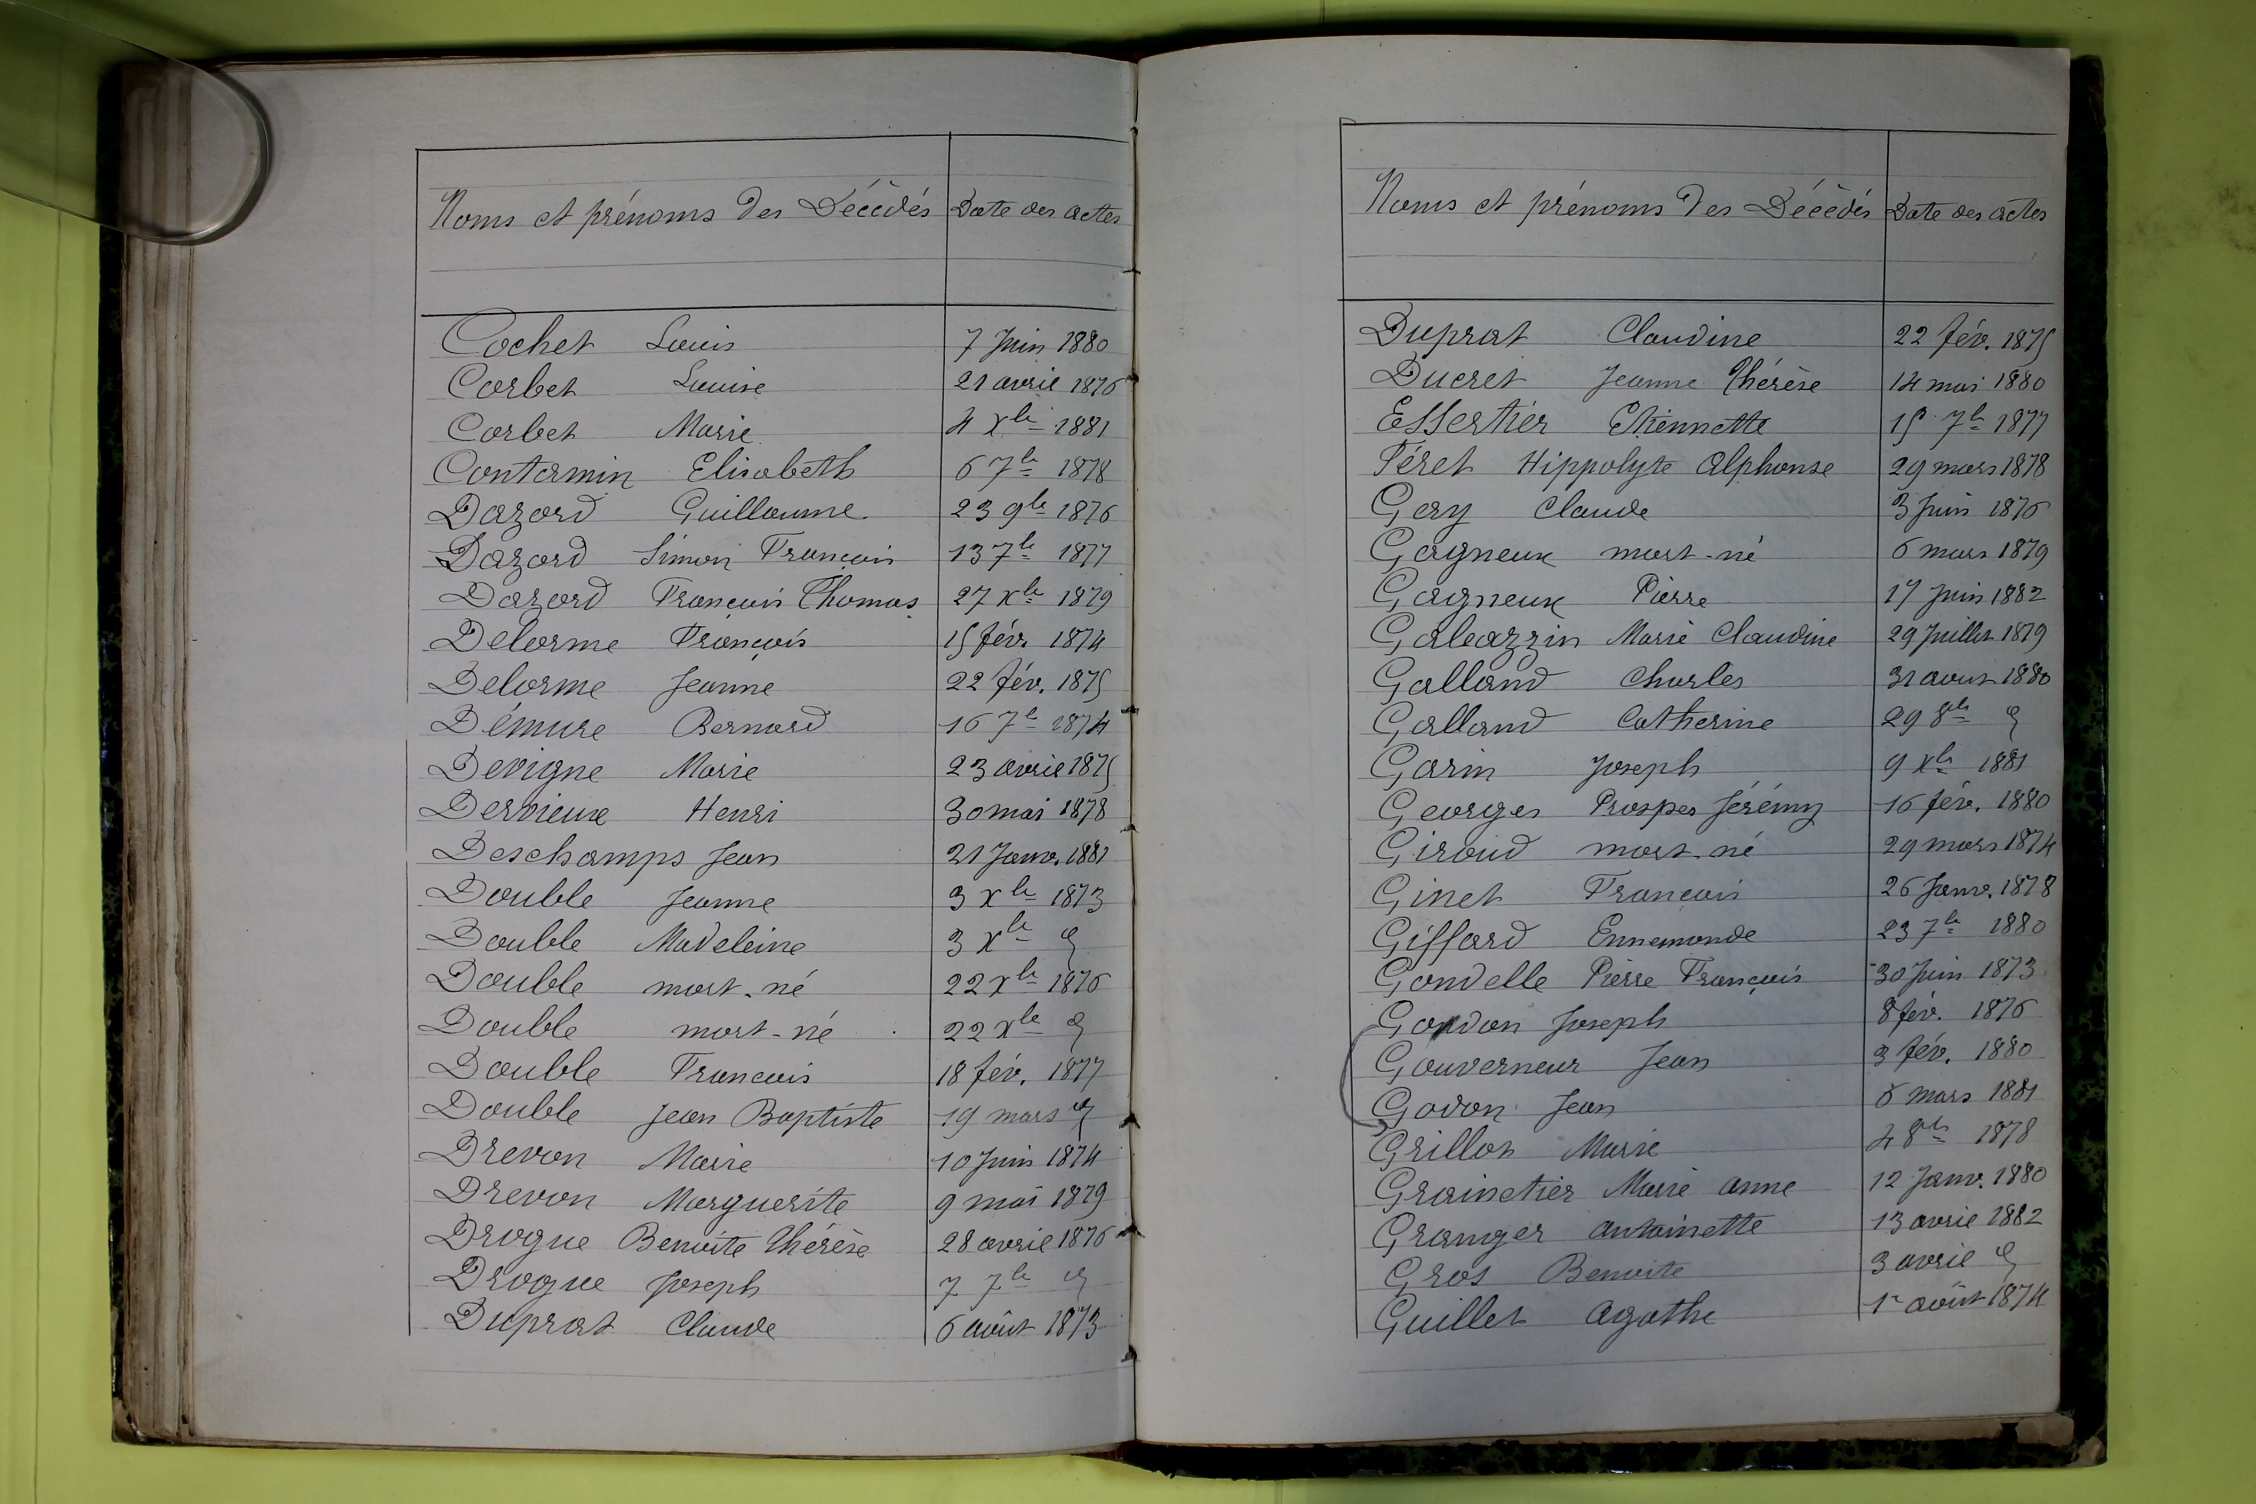 Noms et prénoms des Décédés Date des actes
Cochet Louis 7 Juin 1880
Corbet Louise 21 avril 1876
Corbet Marie 4 Xbre 1881
Contarmin Elisabeth 6 7bre 1878
Dazard Guillaume 23 9bre 1876
Dazard Simon François 13 7bre 1877
Dazard François Thomas 27 Xbre 1879
Delorme François 15 fév. 1874
Delorme Jeanne 22 fév. 1875
Démure Bernard 16 7bre 1874
Devigne Marie 23 avril 1875
Dervieux Henri 30 mai 1878
Deschamps Jean 21 Janv. 1881
Double Jeanne 3 Xbre 1873
Double Madeleine 3 Xbre
Double mort-né 22 Xbre 1876
Double mort-né 22 Xbre
Double François 18 fév. 1877
Double Jean Baptiste 19 mars
Drevon Marie 10 Juin 1874
Drevon Marguerite 9 mai 1879
Drogue Benoite Thérèse 28 avril 1876
Drogue Joseph 7 7bre
Duprat Claude 6 août 1873
Noms et prénoms des Décédés Date des actes
Duprat Claudine 22 fév. 1875
Ducret Jeanne Thérèse 14 mai 1880
Essertier Etiennette 15 7bre 1877
Féret Hippolyte Alphonse 29 mars 1878
Gay Claude 3 Juin 1876
Gagneux mort-né 6 mars 1879
Gagneux Pierre 17 Juin 1882
Galeazzin Marie Claudine 29 Juillet 1879
Galland Charles 31 aout 1880
Galland Catherine 29 8bre
Garin Joseph 9 Xbre 1881
Georges Prosper Jérémy 16 fév. 1880
Giroud mort-né 29 mars 1874
Ginet François 26 Janv. 1878
Giffard Ennemonde 23 7bre 1880
Gondelle Pierre François 30 Juin 1873
Gordon Joseph 8 fév. 1876
Gouverneur Jean 3 fév. 1880
Godon Jean 6 mars 1881
Grillot Marie 4 8bre 1878
Grainetier Marie anne 12 Janv. 1880
Granger antoinette 13 avril 1882
Gros Benoite 3 avril
Guillet agathe 1r août 1874